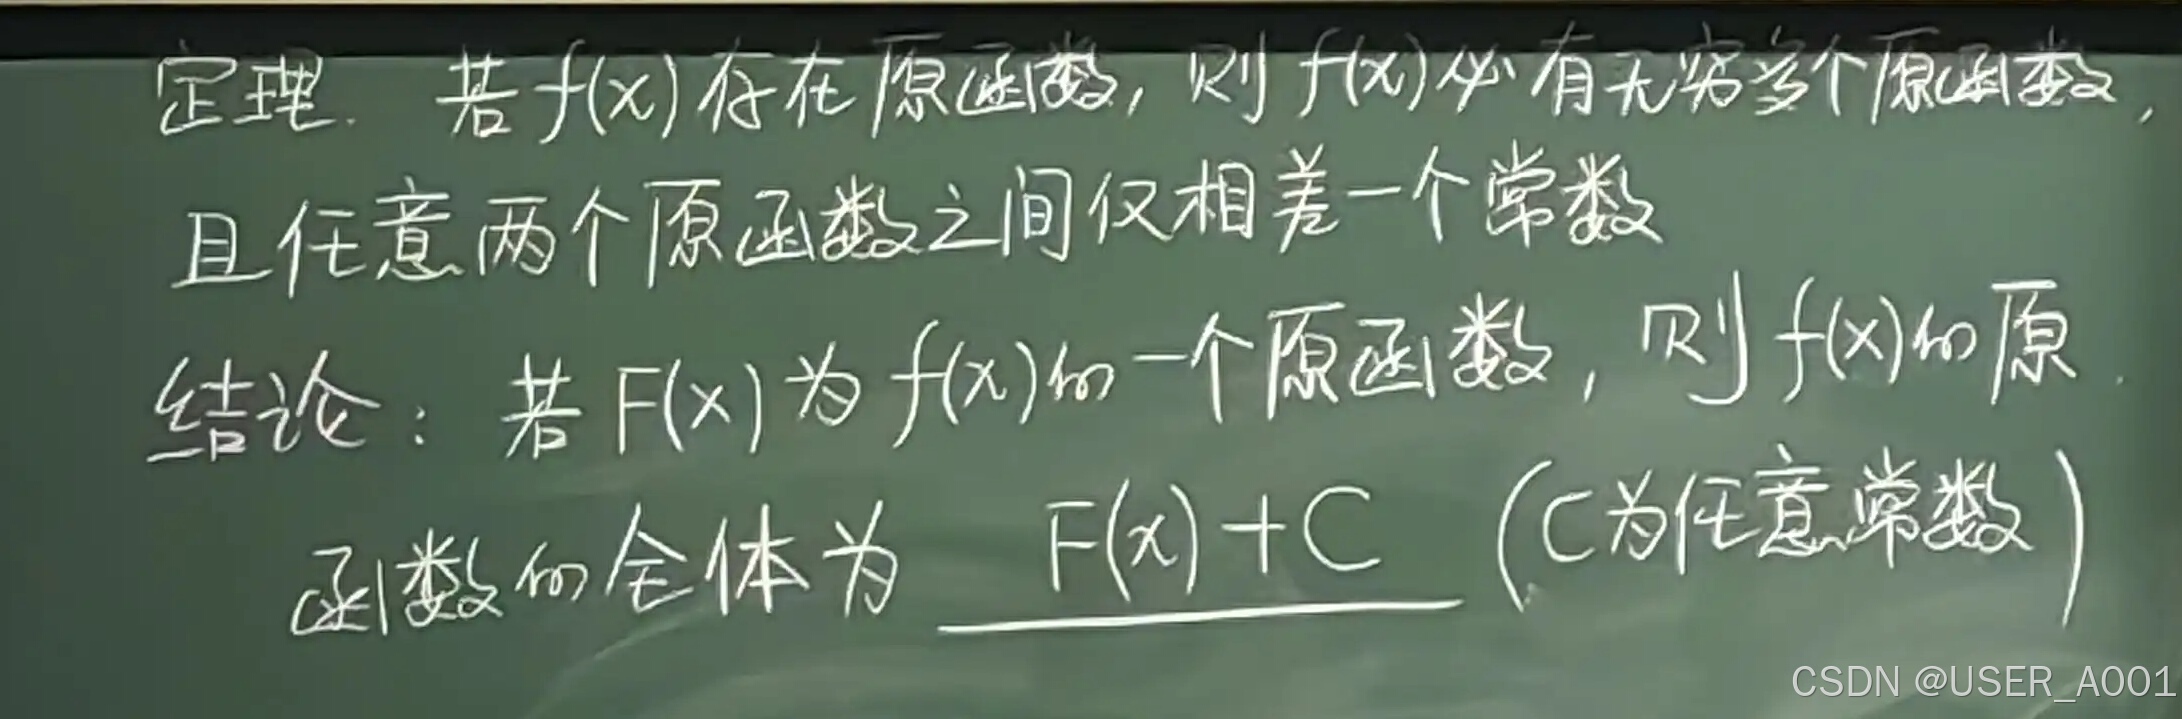 定理. 若f(x)存在原函数, 则f(x)必有无穷多个原函数,
且任意两个原函数之间仅相差一个常数
结论: 若F(x)为f(x)的一个原函数, 则f(x)的原
函数的全体为 F(x)+C (C为任意常数)
CSDN @USER_A001